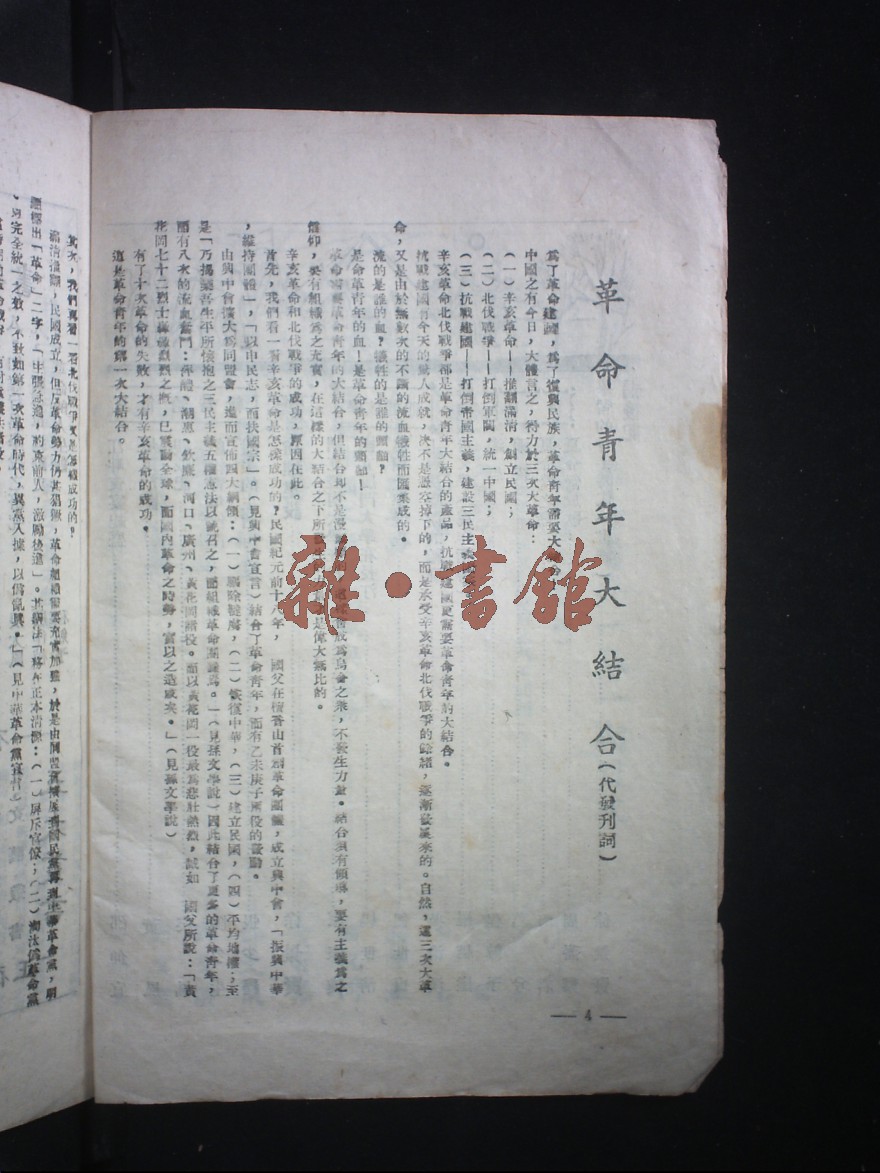 革命青年大結合(代發刊詞)
爲了革命建國,爲了復興民族,革命青年需要大
中國之有今日,大體言之,得力於三次大革命:
(一)辛亥革命——推翻滿清,創立民國;
(二)北伐戰爭——打倒軍閥,統一中國;
(三)抗戰建國——打倒帝國主義,建設三民主義
辛亥革命北伐戰爭都是革命青年大結合的產品,抗戰建國更需要革命青年的大結合。
抗戰建國有今天的驚人成就,決不是憑空掉下的,而是承受辛亥革命北伐戰爭的餘緒,逐漸發展來的。自然,這三次大革
命,又是由於無數次的不斷的流血犧牲而匯集成的。
流的是誰的血?犧牲的是誰的頭顱?
是革命青年的血!是革命青年的頭顱!
革命需要革命青年的大結合,但結合却不是漫 成爲烏合之衆,不發生力量。結合須有領導,要有主義爲之
信仰,要有組織爲之充實,在這樣的大結合之下所 是偉大無比的。
辛亥革命和北伐戰爭的成功,原因在此。
首先,我們看一看辛亥革命是怎樣成功的?民國紀元前十八年, 國父在檀香山首創革命團體,成立興中會,「振興中華
,維持團體」,「以申民志,而扶國宗」。(見興中會宣言)結合了革命青年,而有乙未庚子兩役的發動。
由興中會擴大爲同盟會,進而宣佈四大綱領:(一)驅除韃虜,(二)恢復中華,(三)建立民國,(四)平均地權;至
是「乃揭櫫吾生平所懷抱之三民主義五權憲法以號召之,而組織革命團體焉。」(見孫文學說)因此結合了更多的革命青年,
而有八次的流血奮鬥:萍醴、潮惠、欽廉、河口、廣州、黃花岡諸役。而以黃花岡一役最爲悲壯熱烈,誠如 國父所說:「黃
花岡七十二烈士轟轟烈烈之概,已震動全球,而國內革命之時勢,實以之造成矣。」(見孫文學說)
有了十次革命的失敗,才有辛亥革命的成功。
這是革命青年的第一次大結合。
— 4 —
雜·書館
其次,我們再看一看北伐戰爭又是怎樣成功的?
滿清推翻,民國成立,但反革命勢力仍甚猖獗,革命組織需要充實加強,於是由同盟會擴展爲國民黨再進中華革命黨,明
顯標出「革命」二字,「
完全統一之效,不致如第一次革命時代,異黨入據,以僞亂眞。」(見中華革命黨宣言)